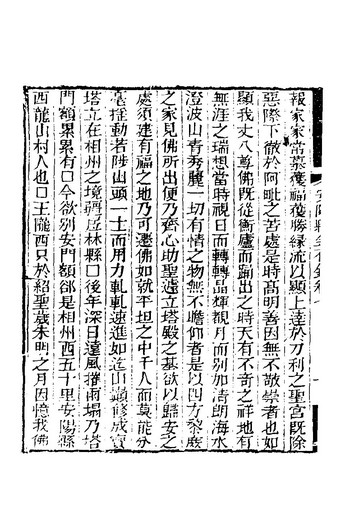 報家家當慕獲福獲勝緣流以顯上達於刀利之聖宮既除
惡際下徹於阿毗之苦處是時高明善因無不敬崇者也如
顯我丈八尊佛既從衡廬而踊出之時天有不奇之祥地有
無涯之瑞想當時視日而轉轉晶輝觀月而別加清朗海水
澄波山青秀麗一切有情之物無不瞻仰者是以四方黎庶
之家見佛所出便乃齊心助聖遽立塔殿之基欲以歸安之
處須建有福之地乃可遷佛如就平坦之中千人而莫能分
毫推動若陟山頭一士而用力軋軋速進如迄山巔修成寶
塔立在相州之境彊處林縣口後年深日遠風摧雨塌乃塔
門額累累有口今欲別安門額郤是相州西五十里安陽縣
西龍山村人也口王隴西只於紹聖歲朱明之月因憶我佛
安陽縣金石錄卷七